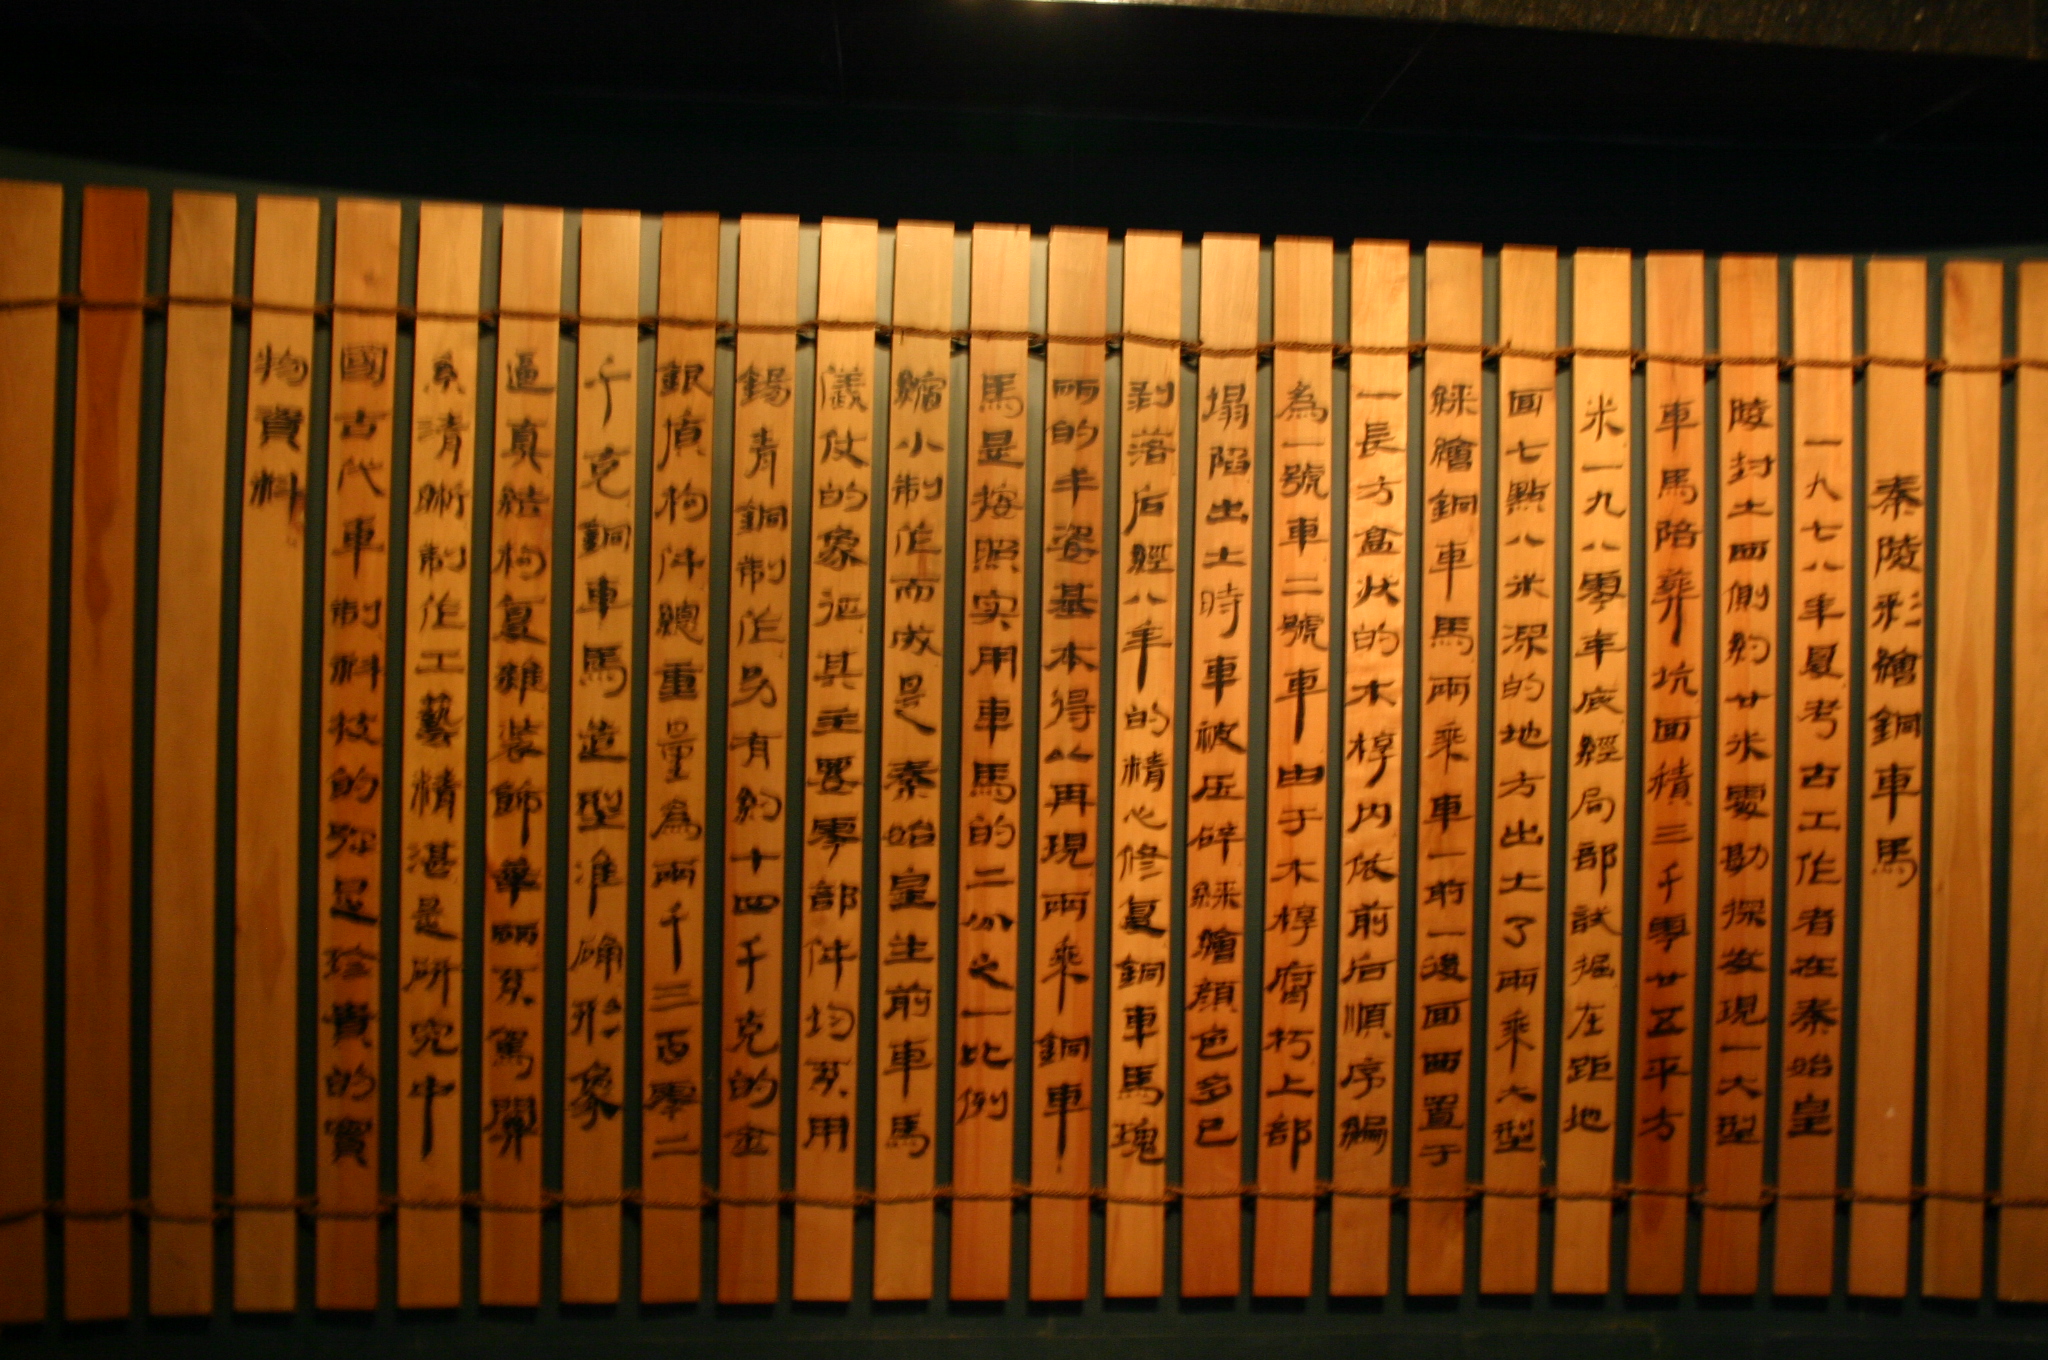 秦陵彩繪銅車馬
一九七八年夏考古工作者在秦始皇
陵封土西側約廿米處勘探发現一大型
車馬陪葬坑面積三千零廿五平方
米一九八零年底經局部試掘在距地
面七點八米深的地方出土了兩乘大型
綵繪銅車馬兩乘車一前一後面西置于
一長方盒状的木椁内依前后順序編
為一號車二號車由于木椁腐朽上部
塌陷出土時車被压碎綵繪顔色多已
剥落后經八年的精心修复銅車馬瑰
丽的丰姿基本得以再現兩乘銅車
馬是按照实用車馬的二分之一比例
縮小制作而成是秦始皇生前車馬
儀仗的象征其主要零部件均系用
錫青銅制作另有約十四千克的金
銀質构件總重量為兩千三百零二
千克銅車馬造型准确形象
逼真結构复雜装飾華丽系駕関
系清晰制作工藝精湛是研究中
國古代車制科技的弥足珍貴的實
物資料